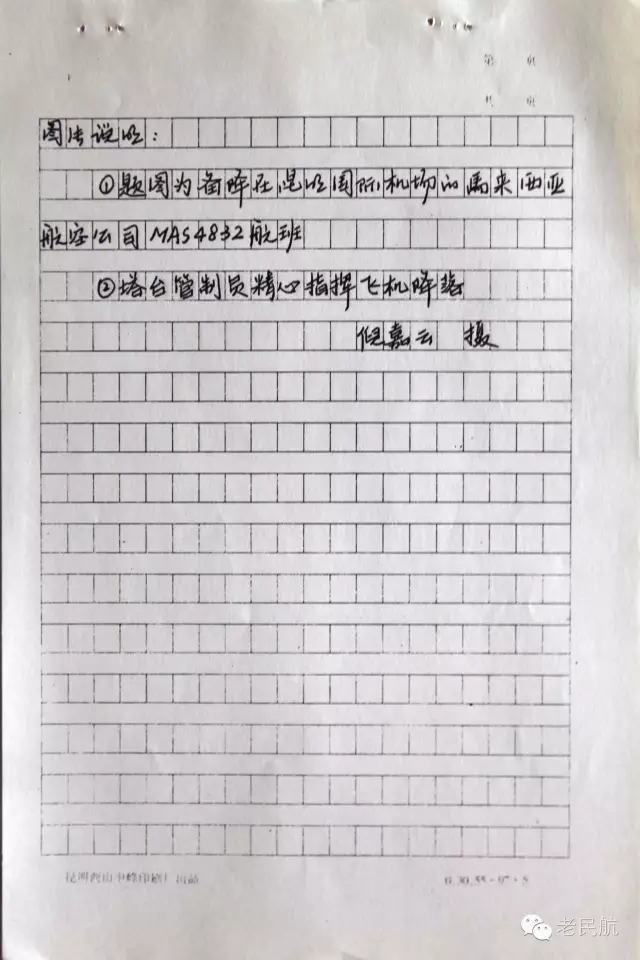 第 页
共 页
图片说明：
①题图为备降在昆明国际机场的马来西亚
航空公司MAS4832航班
②塔台管制员精心指挥飞机降落
倪嘉云 摄
老民航